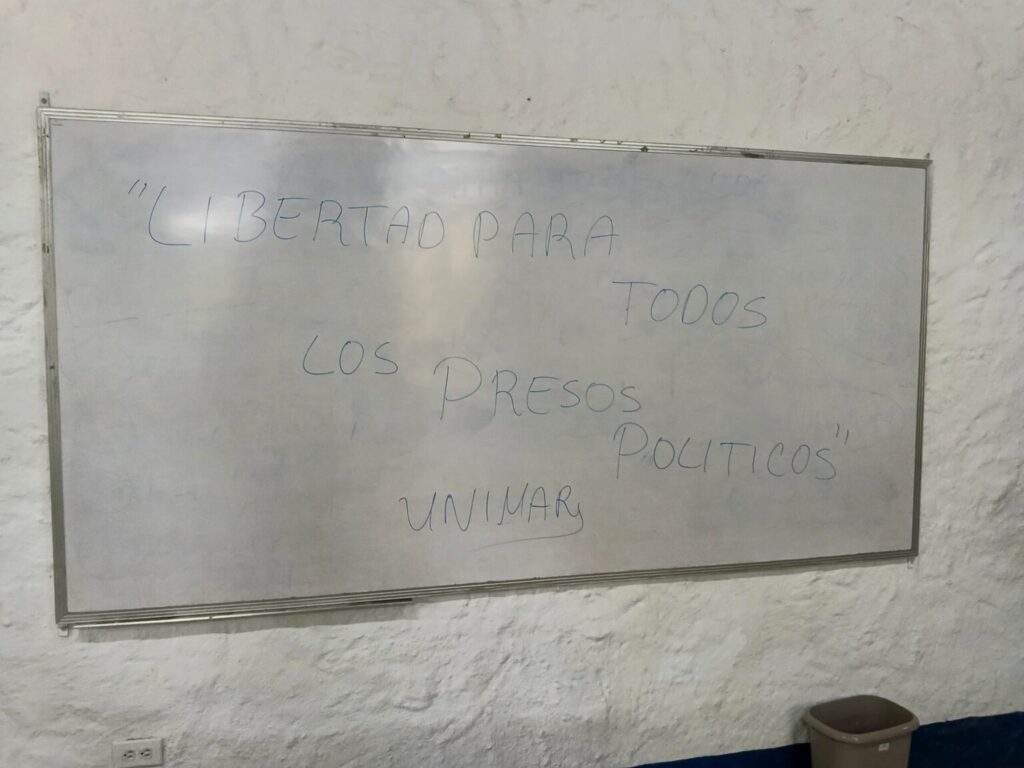 "LIBERTAD PARA
TODOS
LOS PRESOS
POLITICOS"
UNIMAR